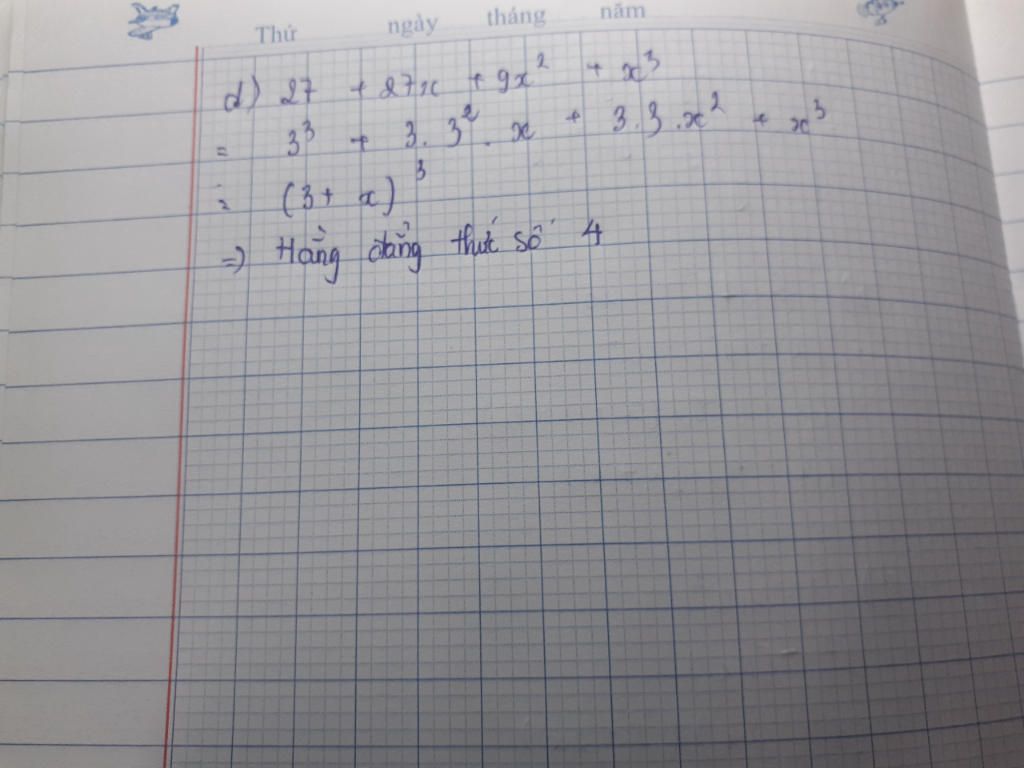 Thứ ngày tháng năm
d) 27 + 27x + 9x² + x³
= 3³ + 3.3².x + 3.3.x² + x³
= (3 + x)³
=> Hằng đẳng thức số 4